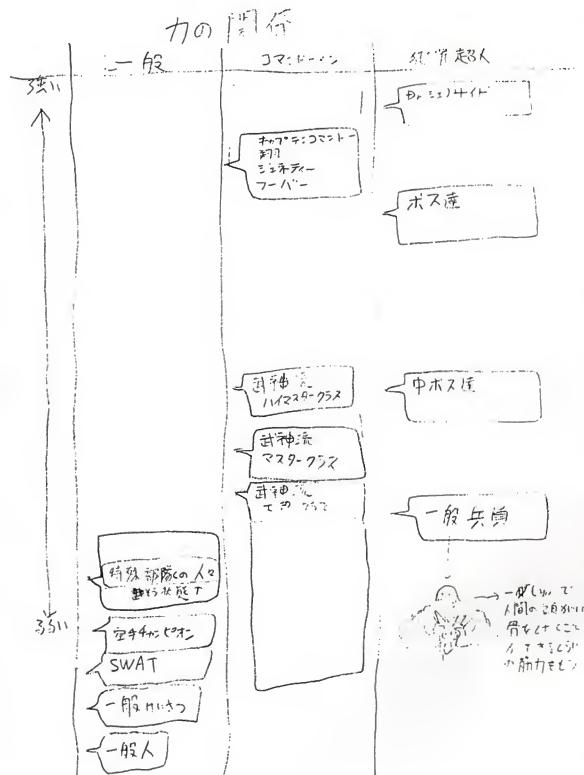 力の関係
一般
コマンドーメン
超人
強い
Dr.ジェノサイド
キャプテンコマンドー
翔
ジェネティー
フーバー
ボス達
武神流
ハイマスタークラス
中ボス達
武神流
マスタークラス
武神流
一般兵員
特殊部隊の人々
状態
弱い
空手チャンピオン
SWAT
一般けいさつ
一般人
人間の
骨をくだくこと
筋力をもつ